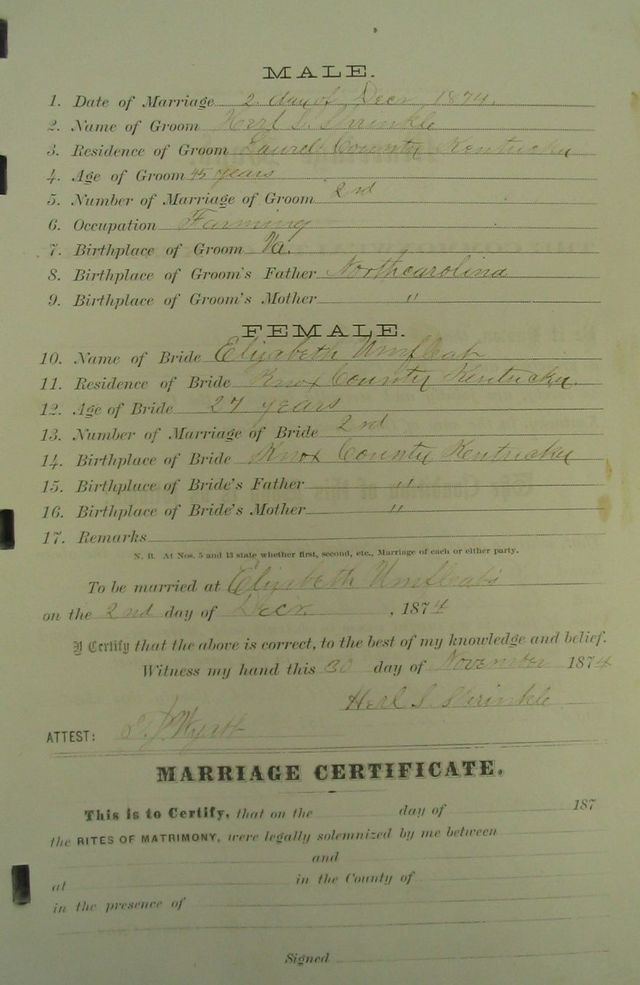 MALE.
1. Date of Marriage 2 day of Decr 1874.
2. Name of Groom Herl S. Skrinkle
3. Residence of Groom Laurel County Kentucky
4. Age of Groom 45 years
5. Number of Marriage of Groom 2nd
6. Occupation Farming
7. Birthplace of Groom Va.
8. Birthplace of Groom's Father Northcarolina
9. Birthplace of Groom's Mother "
FEMALE.
10. Name of Bride Elizabeth Umfleat
11. Residence of Bride Knox County Kentucky.
12. Age of Bride 27 years
13. Number of Marriage of Bride 2nd
14. Birthplace of Bride Knox County Kentucky
15. Birthplace of Bride's Father "
16. Birthplace of Bride's Mother "
17. Remarks
N. B. At Nos. 5 and 13 state whether first, second, etc., Marriage of each or either party.
To be married at Elizabeth Umfleat's
on the 2nd day of Decr. , 1874
I Certify that the above is correct, to the best of my knowledge and belief.
Witness my hand this 30 day of November 1874
Herl S. Skrinkle
ATTEST: Wyatt
MARRIAGE CERTIFICATE.
This is to Certify, that on the day of 187
the RITES OF MATRIMONY, were legally solemnized by me between
and
at in the County of
in the presence of
Signed